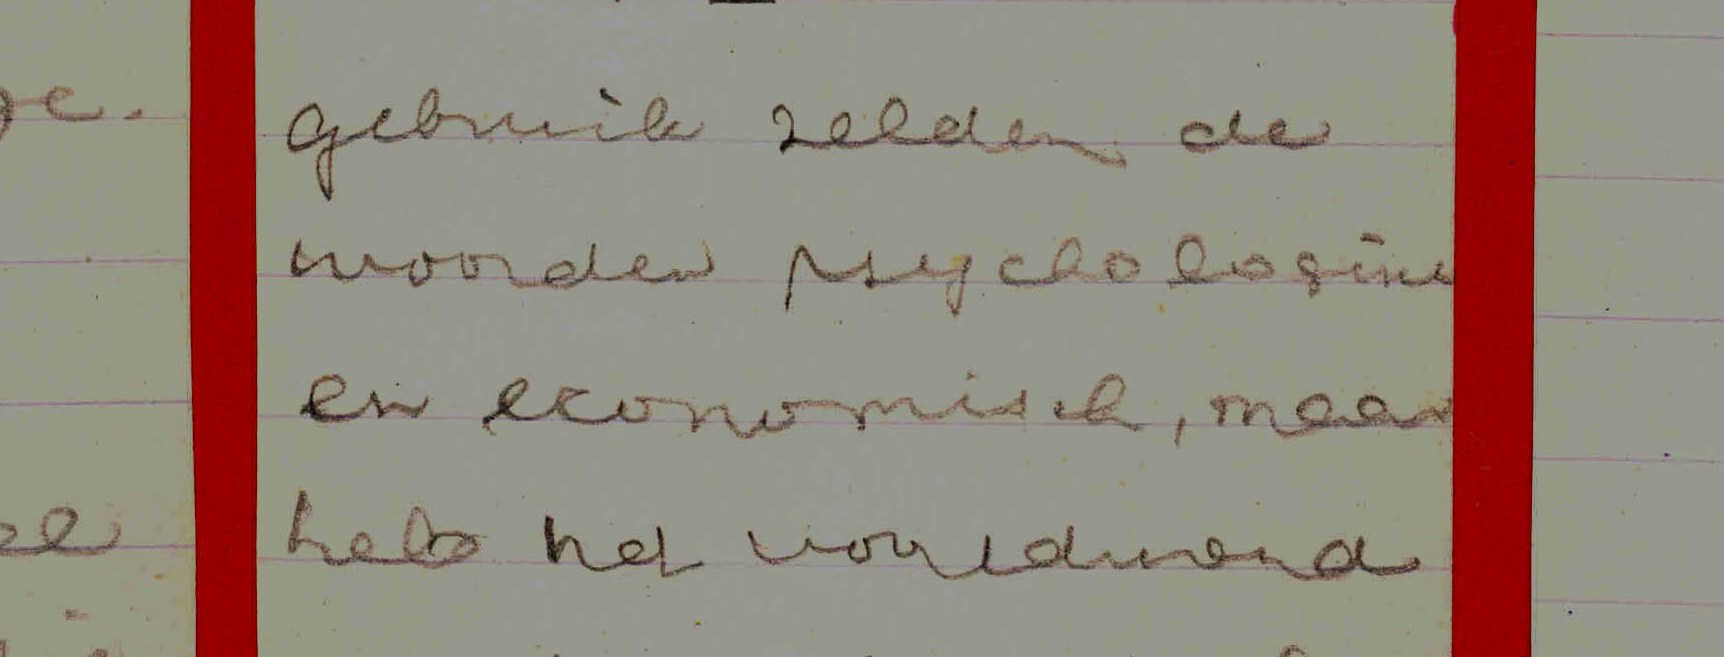 gebruik zelden de
woorden psychologine
en economisch, maar
heb het voortdurend